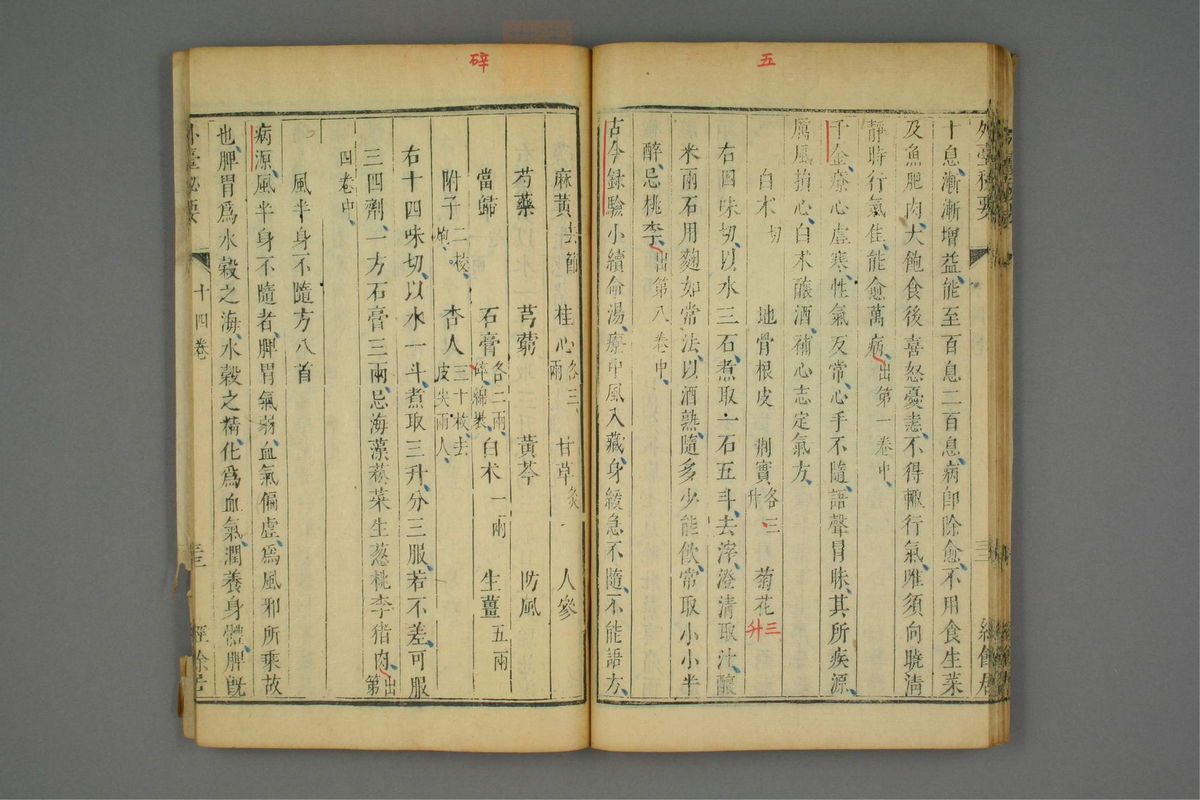 五
十息漸漸增益能至百息二百息病卽除愈不用食生菜
及魚肥肉大飽食後喜怒憂恚不得輒行氣唯須向曉清
靜時行氣佳能愈萬病出第一卷中
千金療心虛寒性氣反常心手不隨語聲冒昧其所疾源
厲風損心白术釀酒補心志定氣方
白术切 地骨根皮 荆實各三升 菊花三升
右四味切以水三石煮取一石五斗去滓澄清取汁釀
米兩石用麴如常法以酒熟隨多少能飲常取小小半
醉忌桃李出第八卷中
古今録驗小續命湯療中風入藏身緩急不隨不能語方
碎
麻黃去節 桂心各三兩 甘草炙 人參
芍藥 芎藭 黃芩 防風
當歸 石膏各二兩碎綿裹 白术一兩 生薑五兩
附子二枚炮 杏人三十枚去皮尖兩人
右十四味切以水一斗煮取三升分三服若不差可服
三四劑一方石膏三兩忌海藻菘菜生葱桃李猪肉出第
四卷中
風半身不隨方八首
病源風半身不隨者脾胃氣弱血氣偏虛爲風邪所乘故
也脾胃爲水穀之海水穀之精化爲血氣潤養身體脾旣
外臺秘要 十四卷 三 經餘居